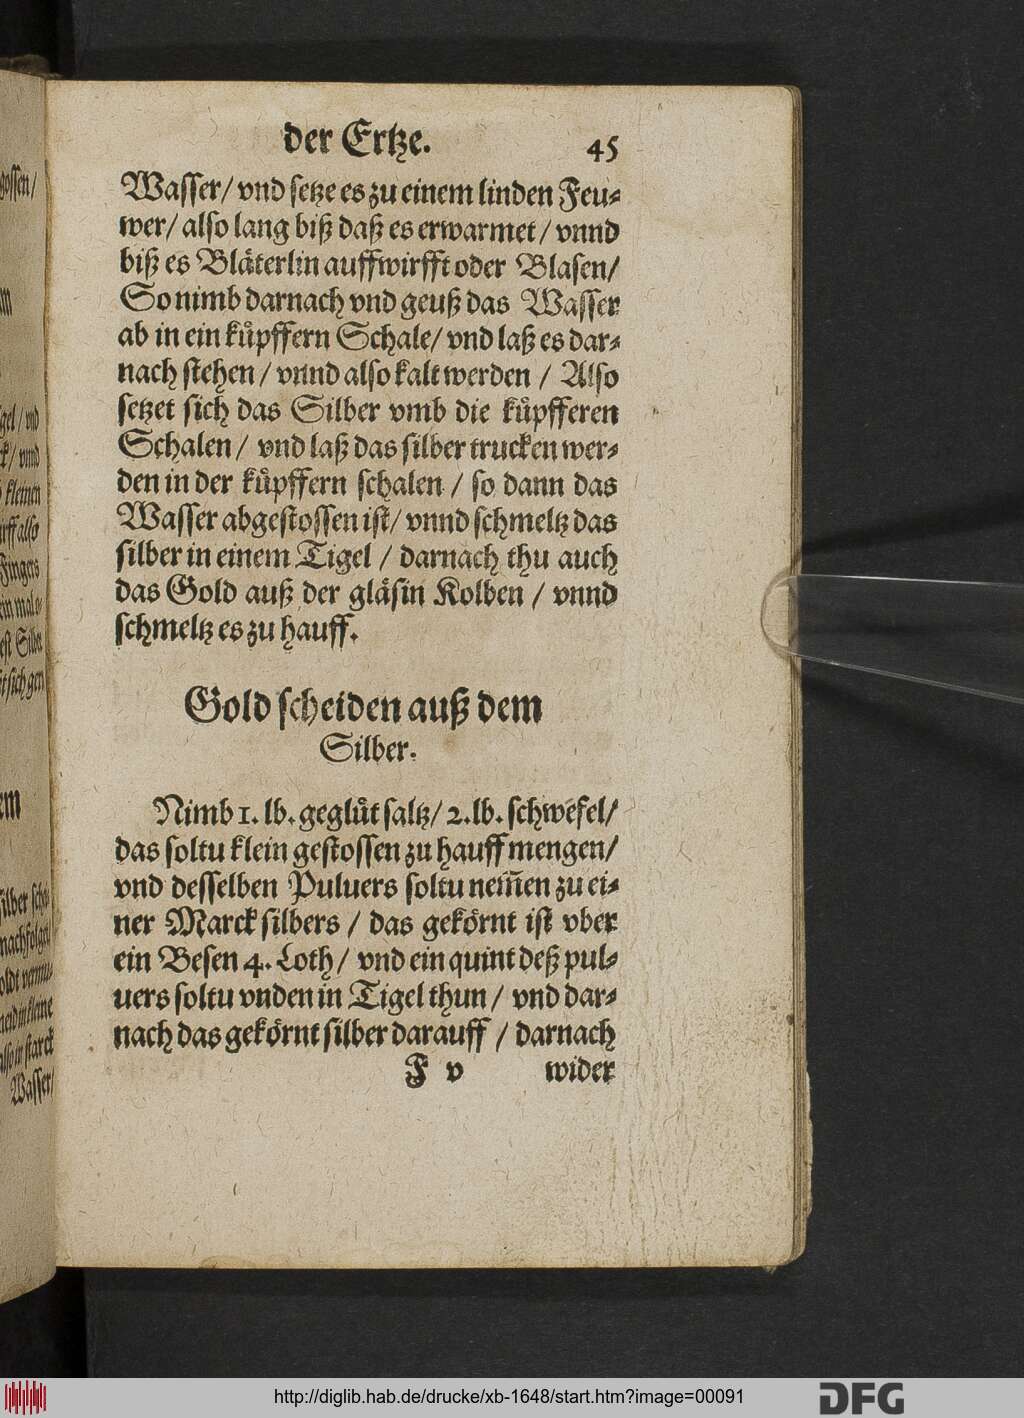 der Ertze. 45
Wasser/ vnd setze es zu einem linden Feu-
wer/ also lang biß daß es erwarmet/ vnnd
biß es Bläterlin auffwirfft oder Blasen/
So nimb darnach vnd geuß das Wasser
ab in ein küpffern Schale/ vnd laß es dar-
nach stehen/ vnnd also kalt werden / Also
setzet sich das Silber vmb die küpfferen
Schalen/ vnd laß das silber trucken wer-
den in der küpffern schalen / so dann das
Wasser abgestossen ist/ vnnd schmeltz das
silber in einem Tigel / darnach thu auch
das Gold auß der gläsin Kolben / vnnd
schmeltz es zu hauff.
Gold scheiden auß dem
Silber.
Nimb 1. lb. geglüt saltz/ 2. lb. schwefel/
das soltu klein gestossen zu hauff mengen/
vnd desselben Puluers soltu nem̃en zu ei-
ner Marck silbers / das gekörnt ist vber
ein Besen 4. Loth/ vnd ein quint deß pul-
uers soltu vnden in Tigel thun / vnd dar-
nach das gekörnt silber darauff / darnach
F v wider
http://diglib.hab.de/drucke/xb-1648/start.htm?image=00091
DFG